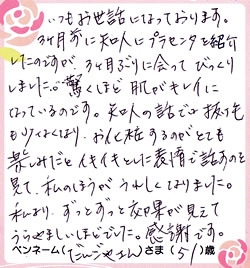 いつもお世話になっております。
3ヶ月前に知人にプラセンタを紹介
したのですが、3ヶ月ぶりに会って びっくり
しました。驚くほど 肌がキレイに
なっているのです。知人の話では 抜け毛
も少なくなり、お化粧するのがとても
楽しみだと イキイキとした表情で話すのを
見て、私のほうが うれしくなりました。
私より、ずっとずっと効果が見えて
うらやましいほどでした。感謝です。
ペンネーム(だんごやさん)さま (51)歳